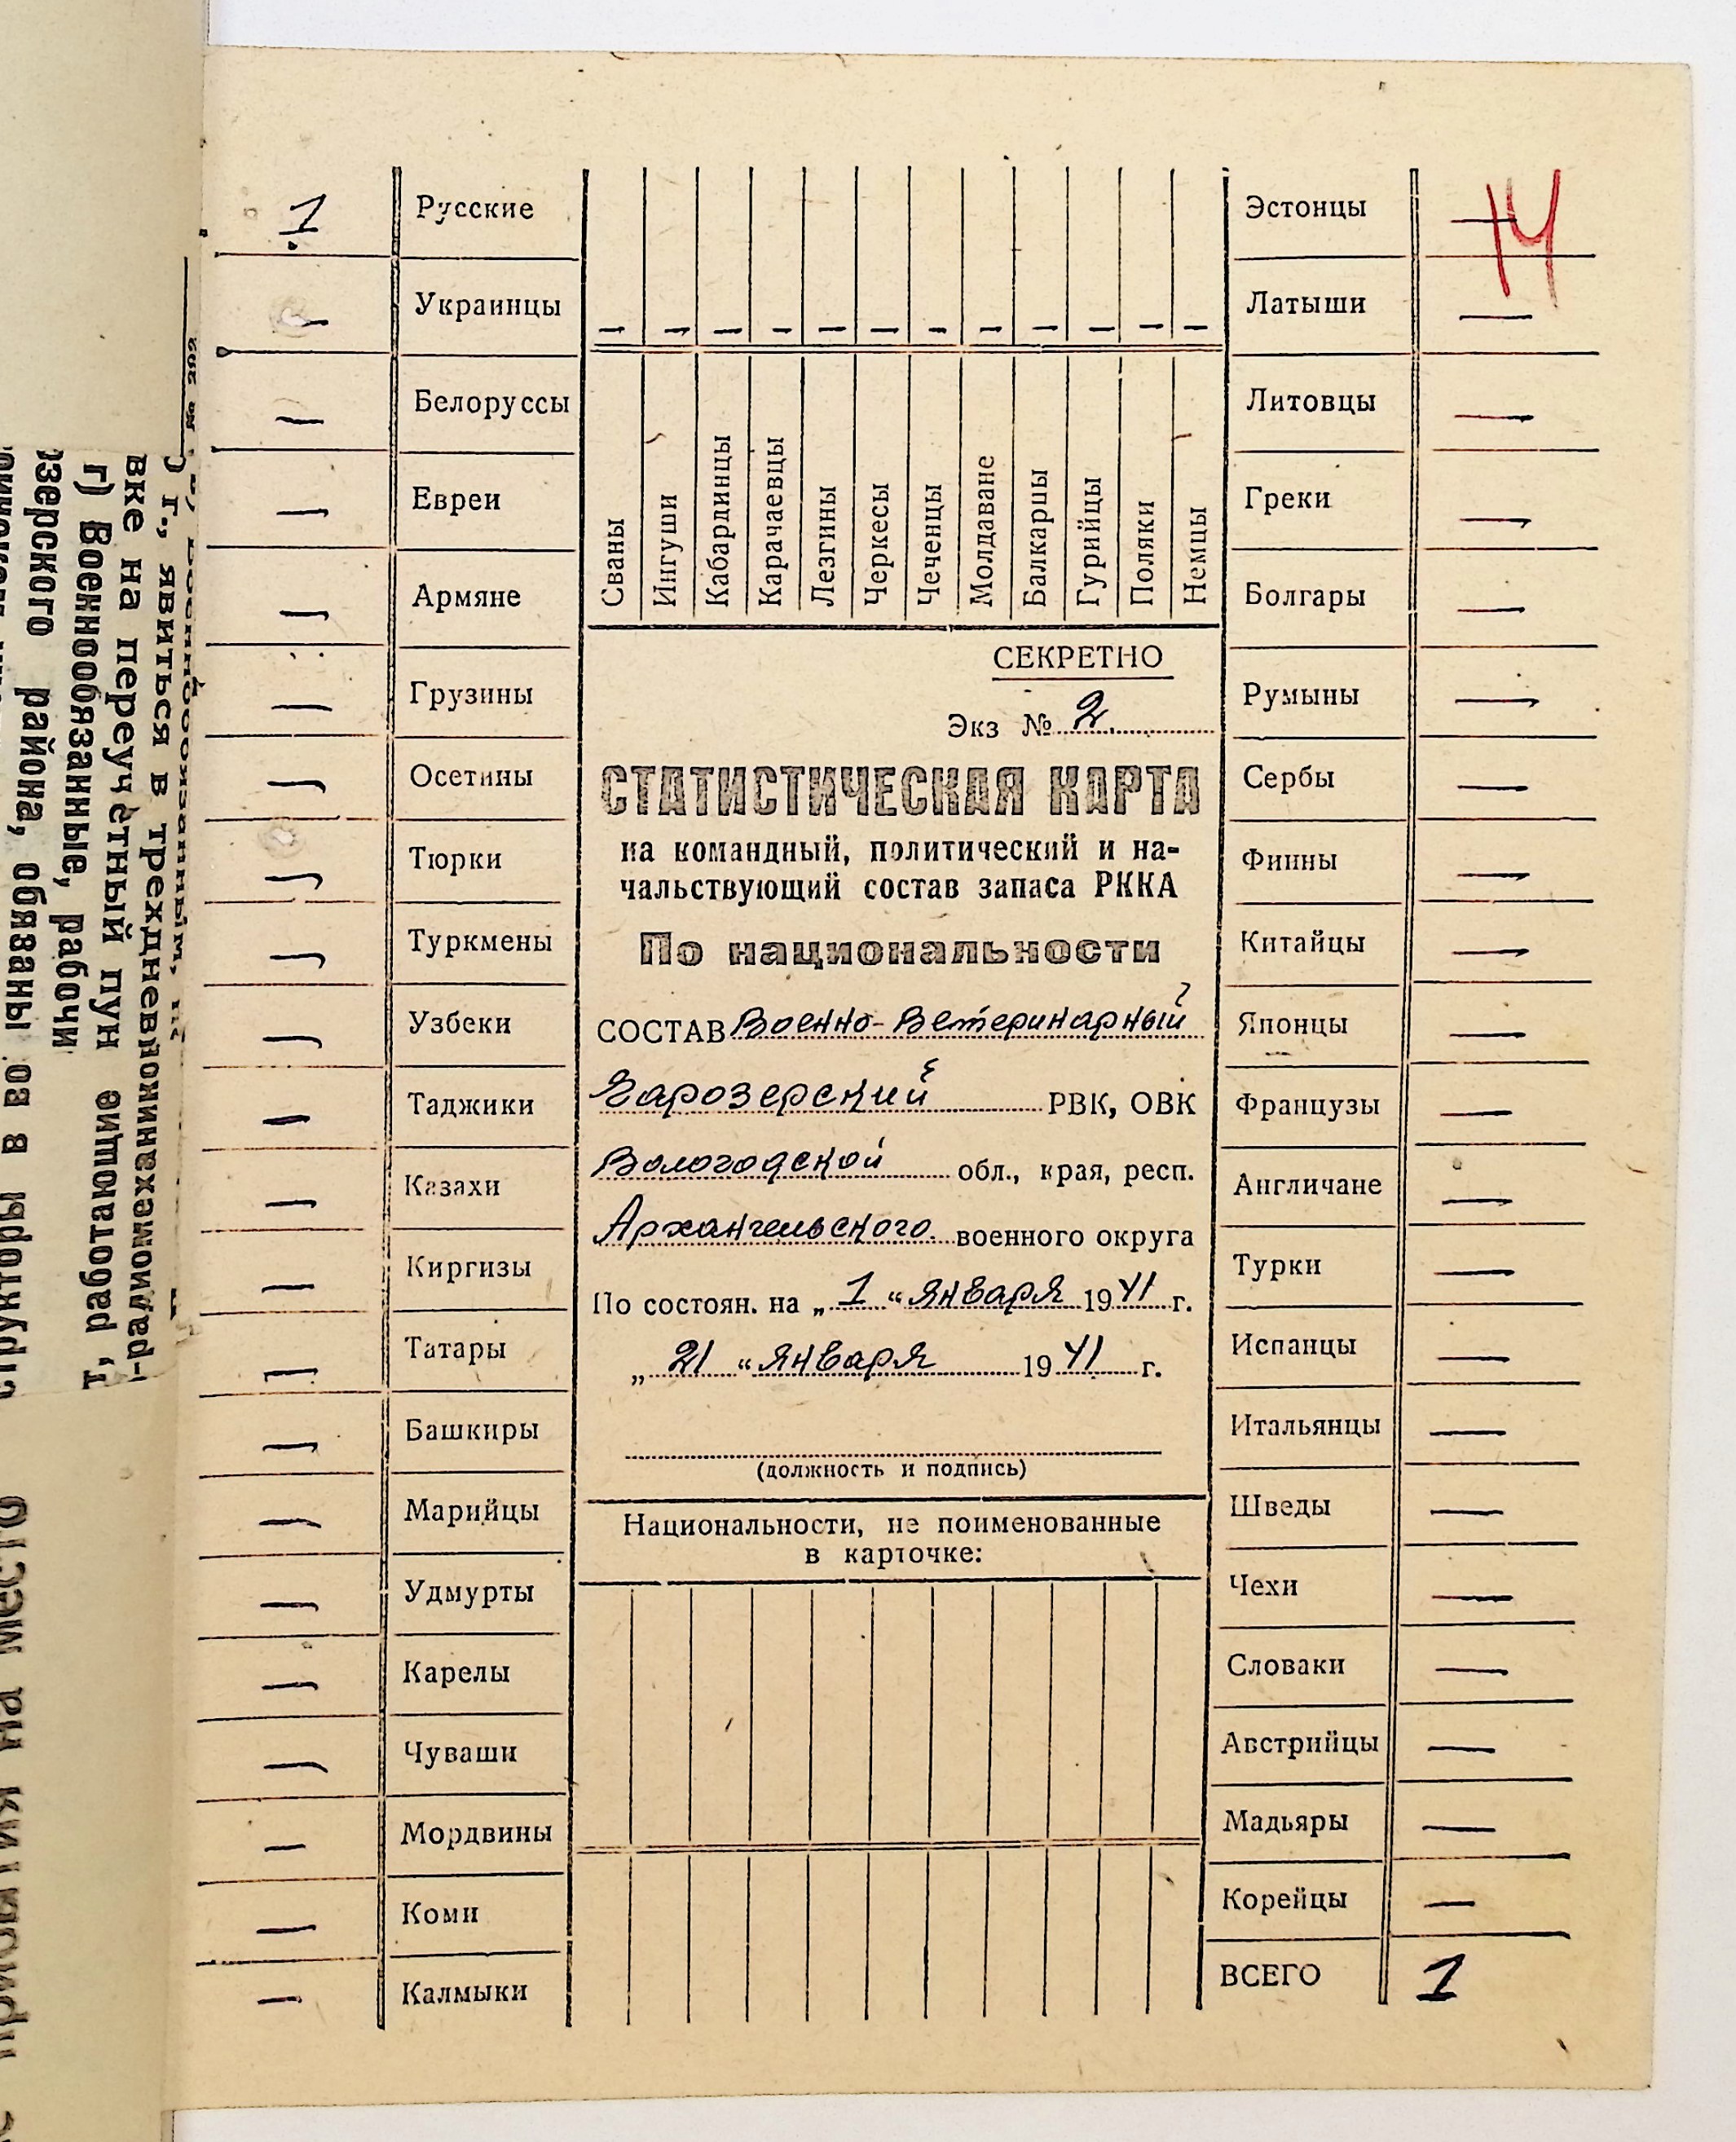 14
1 Русские
— Украинцы
— Белоруссы
— Евреи
— Армяне
— Грузины
— Осетины
— Тюрки
— Туркмены
— Узбеки
— Таджики
— Казахи
— Киргизы
— Татары
— Башкиры
— Марийцы
— Удмурты
— Карелы
— Чуваши
— Мордвины
— Коми
— Калмыки
— Сваны
— Ингуши
— Кабардинцы
— Карачаевцы
— Лезгины
— Черкесы
— Чеченцы
— Молдаване
— Балкарцы
— Гурийцы
— Поляки
— Немцы
СЕКРЕТНО
Экз № 2
СТАТИСТИЧЕСКАЯ КАРТА
на командный, политический и на-
чальствующий состав запаса РККА
По национальности
СОСТАВ Военно-Ветеринарный
Чарозерский РВК, ОВК
Вологодской обл., края, респ.
Архангельского военного округа
По состоян. на „ 1 “ января 1941 г.
„ 21 “ января 1941 г.
(должность и подпись)
Национальности, не поименованные
в карточке:
Эстонцы —
Латыши —
Литовцы —
Греки —
Болгары —
Румыны —
Сербы —
Финны —
Китайцы —
Японцы —
Французы —
Англичане —
Турки —
Испанцы —
Итальянцы —
Шведы —
Чехи —
Словаки —
Австрийцы —
Мадьяры —
Корейцы —
ВСЕГО 1
№ 202
г., явиться в трехдневный
вке на переучётный пун
г) Военнообязанные, рабочи
района, обязаны
работающие
в
на место